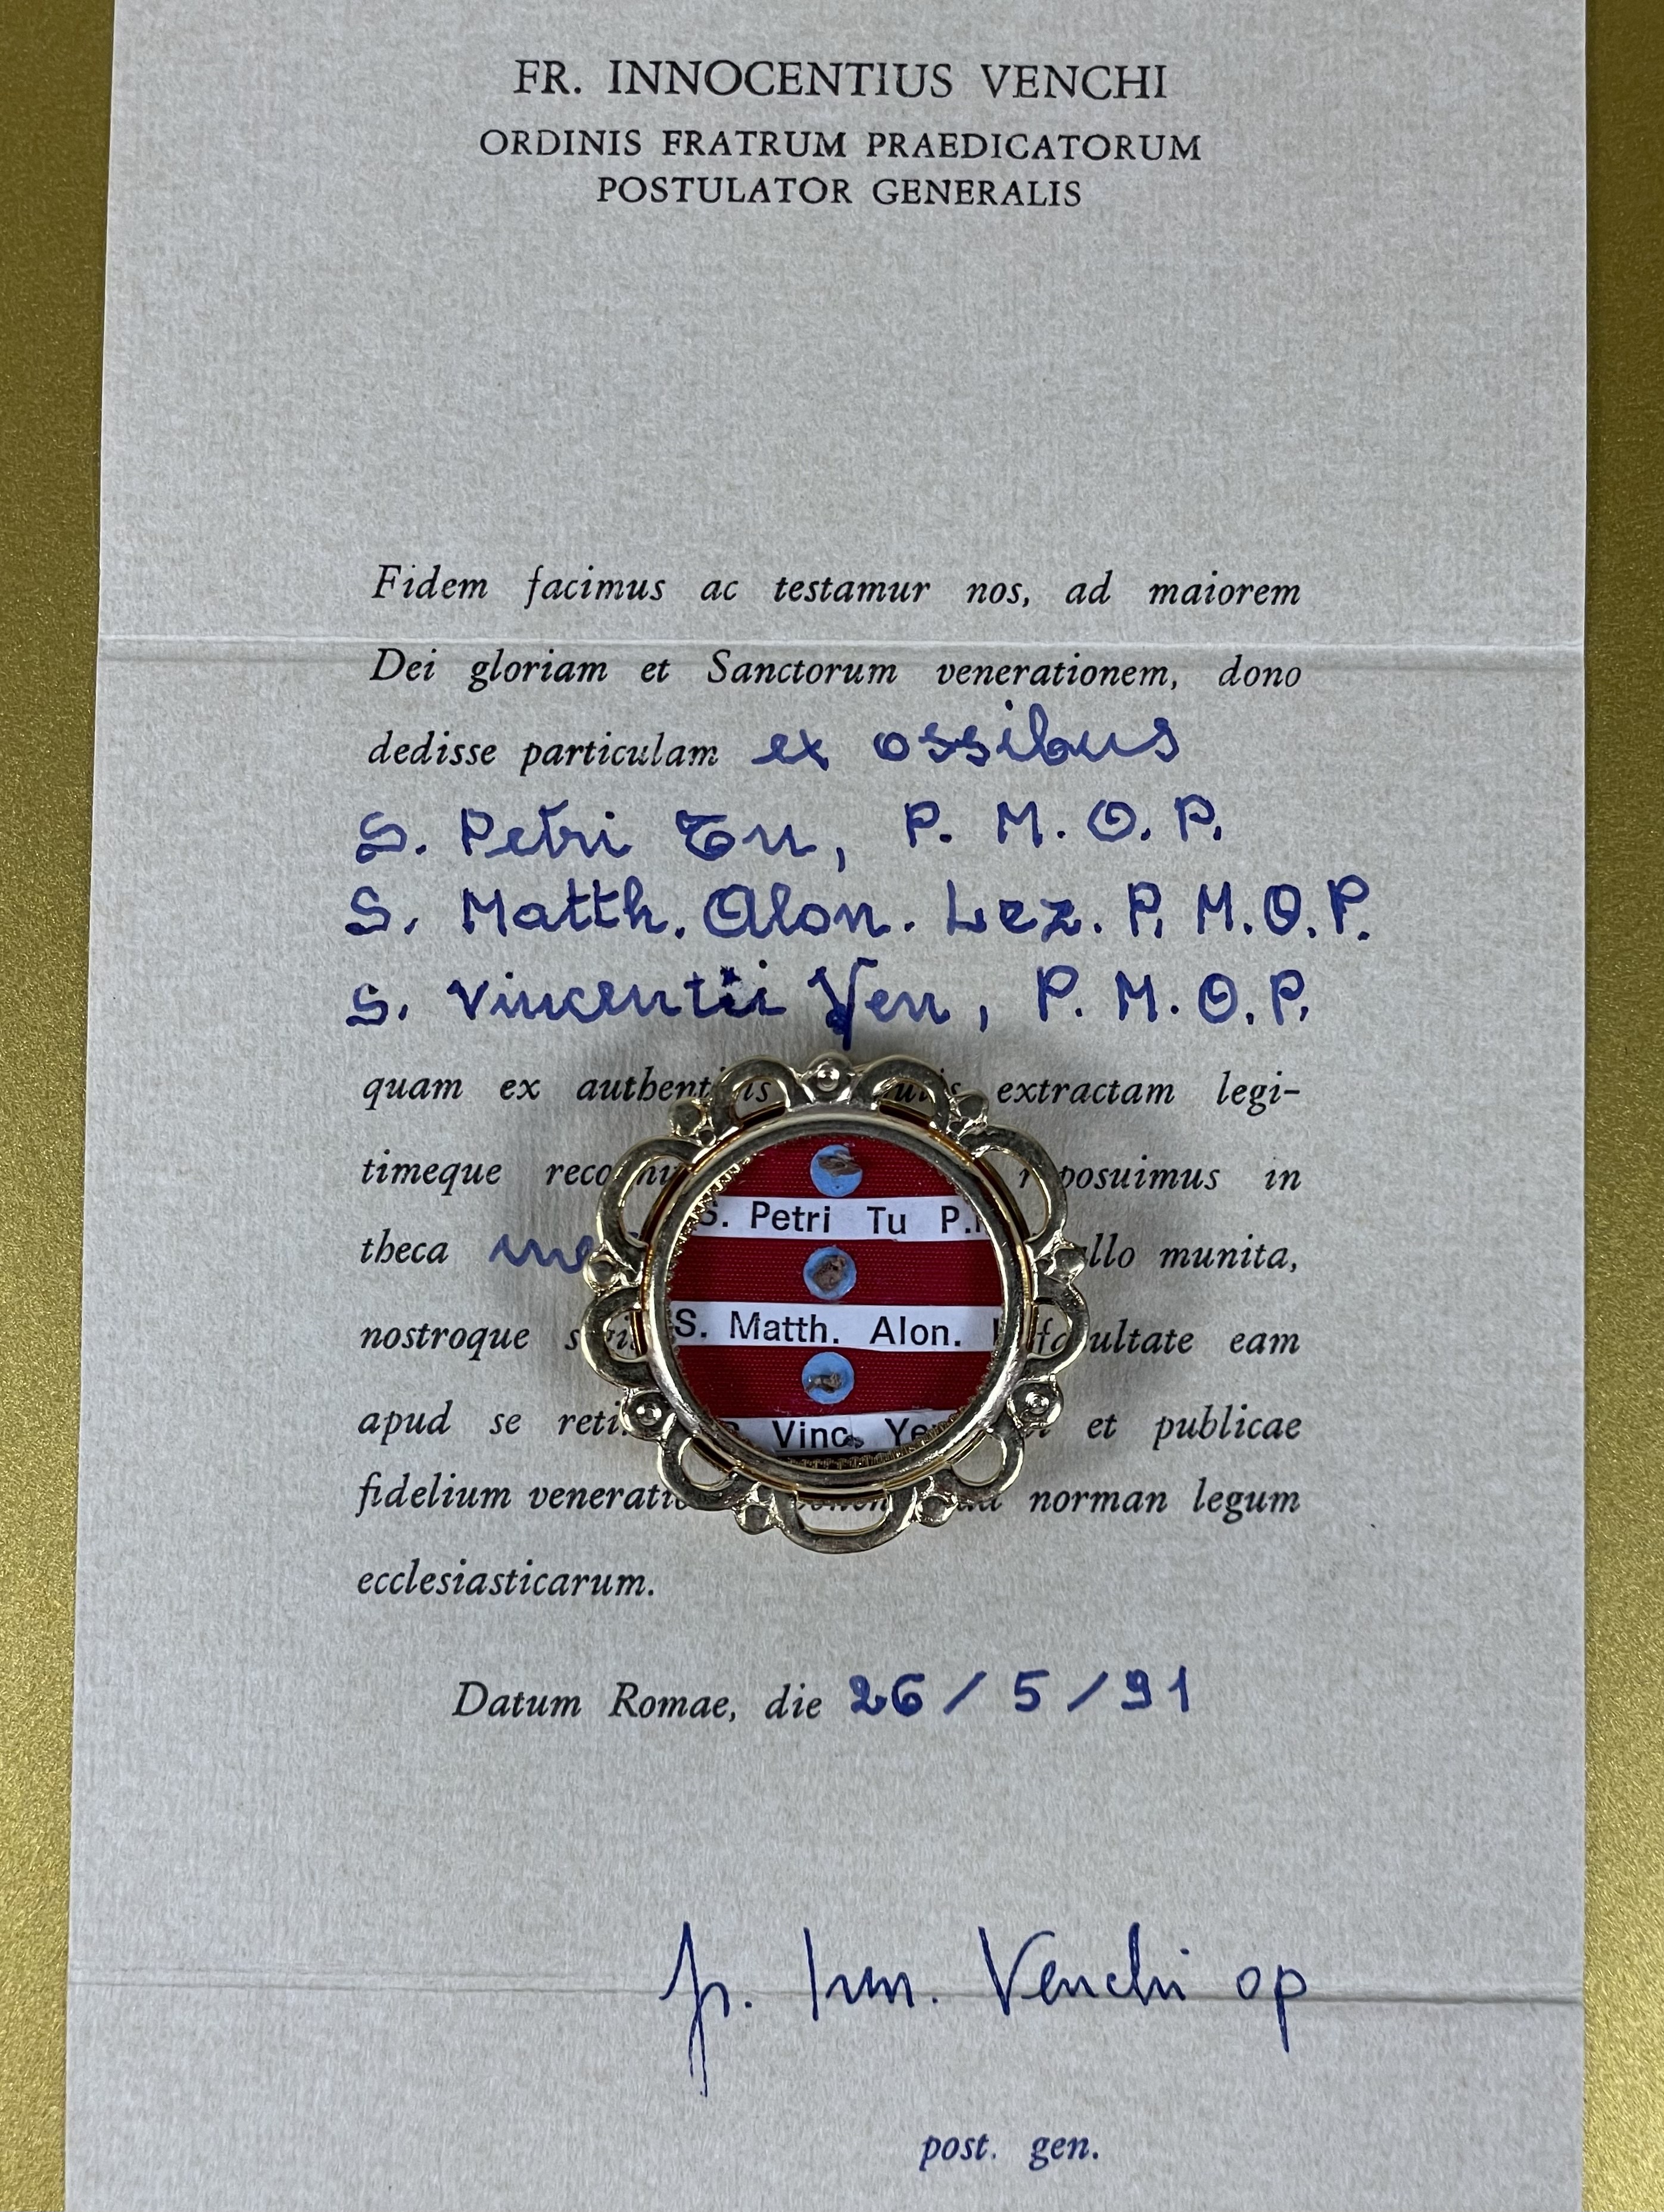 FR. INNOCENTIUS VENCHI
ORDINIS FRATRUM PRAEDICATORUM
POSTULATOR GENERALIS
Fidem facimus ac testamur nos, ad maiorem
Dei gloriam et Sanctorum venerationem, dono
dedisse particulam ex ossibus
S. Petri Tu, P. M. O. P.
S. Matth. Alon. Lez. P. M. O. P.
S. Vincentii Yen, P. M. O. P.
quam ex extractam legi-
timeque in
theca munita,
nostroque eam
apud se et publicae
fidelium norman legum
ecclesiasticarum.
S. Petri Tu
S. Matth. Alon.
Vinc.
Datum Romae, die 26 / 5 / 91
fr. Inn. Venchi op
post. gen.